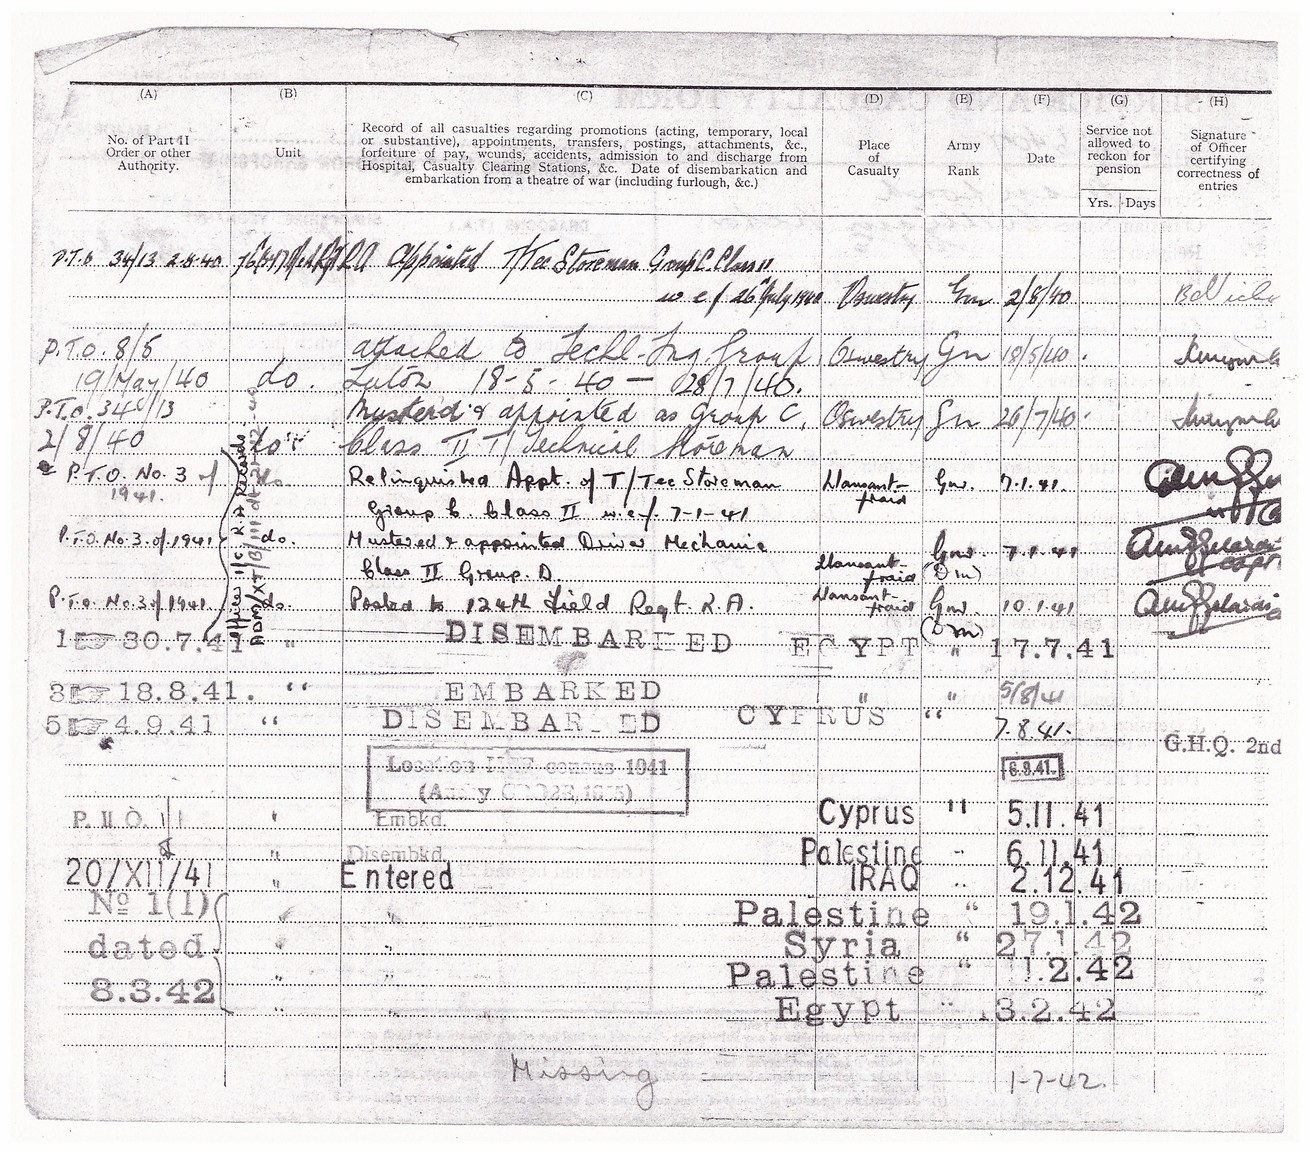 (A) (B) (C) (D) (E) (F) (G) (H)
No. of Part II Order or other Authority.
Unit
Record of all casualties regarding promotions (acting, temporary, local
or substantive), appointments, transfers, postings, attachments, &c.,
forfeiture of pay, wounds, accidents, admission to and discharge from
Hospital, Casualty Clearing Stations, &c. Date of disembarkation and
embarkation from a theatre of war (including furlough, &c.)
Place of Casualty
Army Rank
Date
Service not allowed to reckon for pension
Yrs. Days
Signature of Officer certifying correctness of entries
P.T.O 34/13 2.8.40 R.A Appointed T/Tec Storeman Group C. Class II
w e f 26 July 1940 Oswestry Gnr 2/8/40
P.T.O. 8/5 attached to Techl. Trg Group, Oswestry Gnr 18/5/40.
19/May/40 do. Luton 18-5-40 — 28/7/40.
P.T.O. 34/13 Musterd & appointed as Group C, Oswestry Gnr 26/7/40.
2/8/40 do Class II T/Technical Storeman
P.T.O. No. 3 of do. Relinquished Appt. of T/Tec Storeman Llansant- Gnr. 7.1.41.
1941. Group C. Class II w.e.f. 7-1-41 fraid
P.T.O. No. 3. of 1941 do. Mustered & appointed Driver Mechanic Gnr. 7.1.41
Class II Group. D. Llansant-fraid (D m)
P.T.O. No. 3 of 1941 do. Posted to 124th Field Regt. R.A. Llansant-fraid Gnr. 10.1.41
(D m)
1 30.7.41 " DISEMBARKED EGYPT " 17.7.41
3 18.8.41. " EMBARKED " " 5/8/41
5 4.9.41 " DISEMBAR ED CYPRUS " 7.8.41.
G.H.Q. 2nd
Location census 1941
6.9.41.
P. II O. " Embkd. Cyprus " 5.11.41
" Disembkd. Palestine " 6.11.41
20/XII/41 " Entered IRAQ " 2.12.41
No 1(1) " " Palestine " 19.1.42
dated " " Syria " 27.1.42
" " Palestine " .2.42
8.3.42 " " Egypt " 3.2.42
Missing 1-7-42.